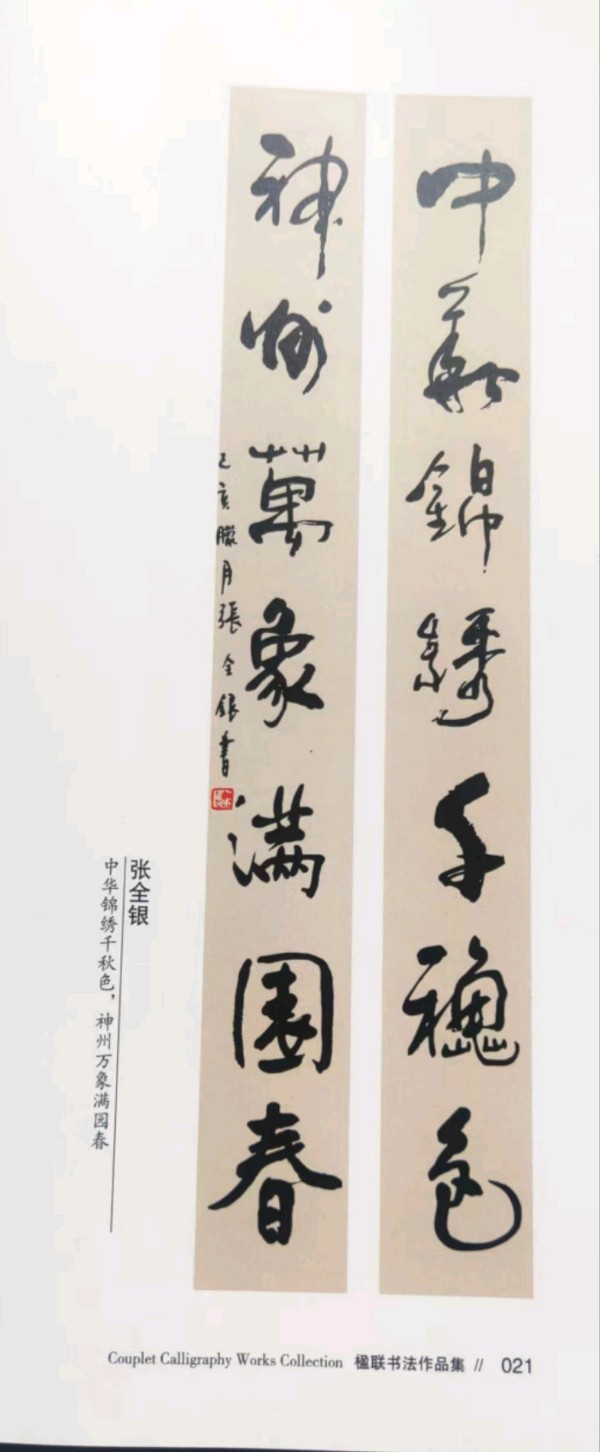 中華錦繡千穐色
神州萬象满園春
己亥臘月張全銀書
张全银
中华锦绣千秋色，神州万象满园春
Couplet Calligraphy Works Collection 楹联书法作品集 // 021